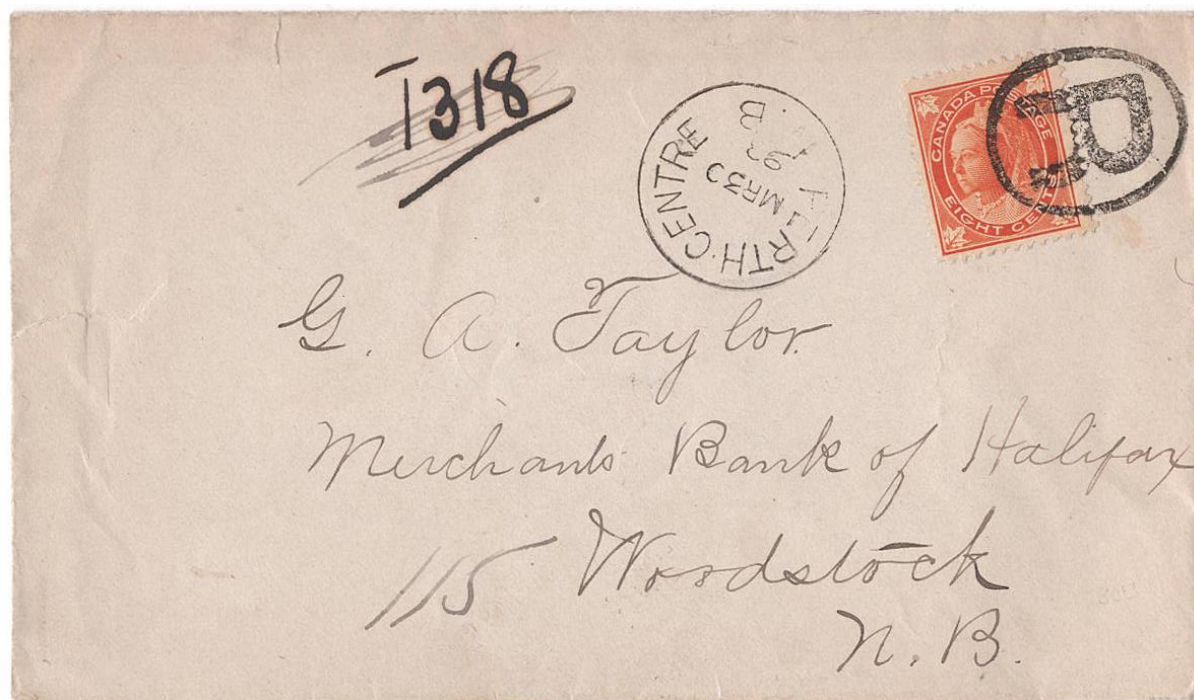 1318
PERTH·CENTRE
MR 30
N. B.
CANADA POSTAGE
EIGHT CENTS
R
G. A. Taylor.
Merchants Bank of Halifax
115 Woodstock
N. B.